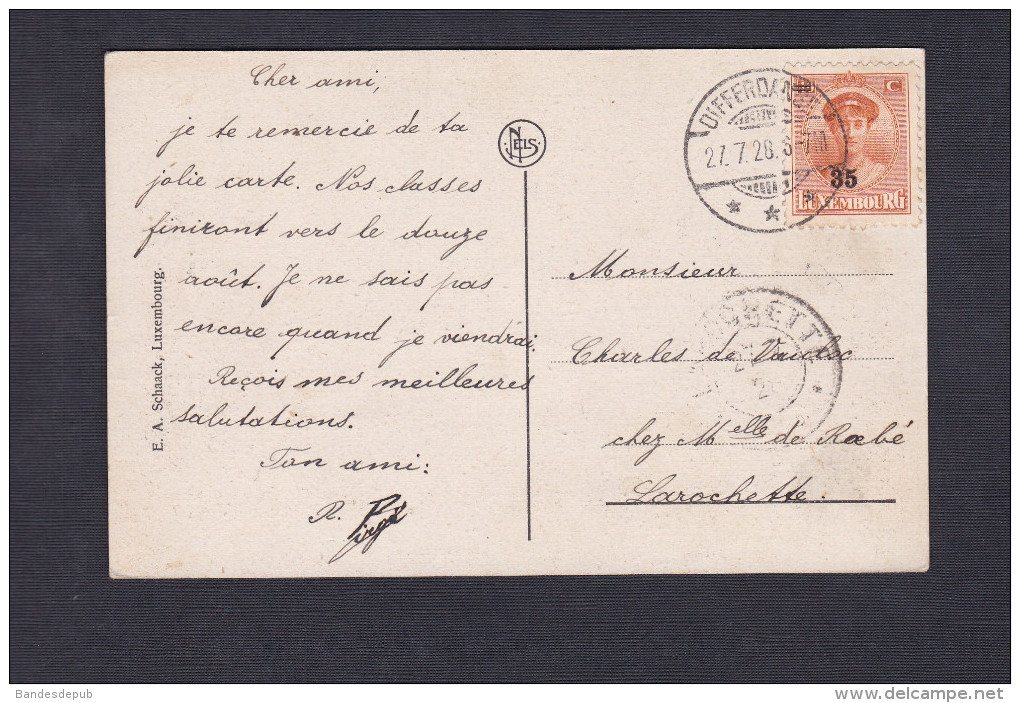 Cher ami,
je te remercie de ta
jolie carte. Nos classes
finiront vers le douze
août. Je ne sais pas
encore quand je viendrai.
Reçois mes meilleures
salutations.
Ton ami:
R.
E. A. Schaack, Luxembourg.
NELS
DIFFERDANGE
27.7.28.
C
35
LUXEMBOURG
Monsieur
Charles de
chez Melle de Rabé
Larochette.
Bandesdepub
www.delcampe.net